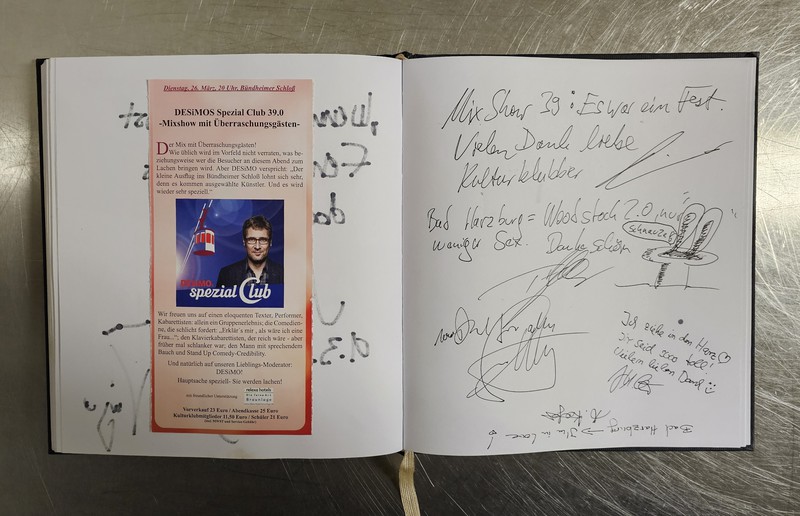 Dienstag, 26. März, 20 Uhr, Bündheimer Schloß
DESiMOS Spezial Club 39.0
-Mixshow mit Überraschungsgästen-
Der Mix mit Überraschungsgästen!
Wie üblich wird im Vorfeld nicht verraten, was be-
ziehungsweise wer die Besucher an diesem Abend zum
Lachen bringen wird. Aber DESiMO verspricht: „Der
kleine Ausflug ins Bündheimer Schloß lohnt sich sehr,
denn es kommen ausgewählte Künstler. Und es wird
wieder sehr speziell.“
DESiMO
spezial Club
Wir freuen uns auf einen eloquenten Texter, Performer,
Kabarettisten: allein ein Gruppenerlebnis; die Comedien-
ne, die schlicht fordert: „Erklär´s mir , als wäre ich eine
Frau...“; den Klavierkabarettisten, der reich wäre - aber
früher mal schlanker war; den Mann mit sprechendem
Bauch und Stand Up Comedy-Credibility.
Und natürlich auf unseren Lieblings-Moderator:
DESiMO!
Hauptsache speziell- Sie werden lachen!
mit freundlicher Unterstützung
relexa hotels
Braunlage
Vorverkauf 23 Euro / Abendkasse 25 Euro
Kulturklubmitglieder 11,50 Euro / Schüler 21 Euro
MixShow 39: Es war ein Fest.
Vielen Dank liebe
Kulturklubber
Bad Harzburg = Woodstock 2.0, nur
weniger Sex. Dankeschön
Schnauze!
Ich ziehe in den Harz
Ihr seid sooo toll!
Vielen lieben Dank
Bad Harzburg -> I'm in Love